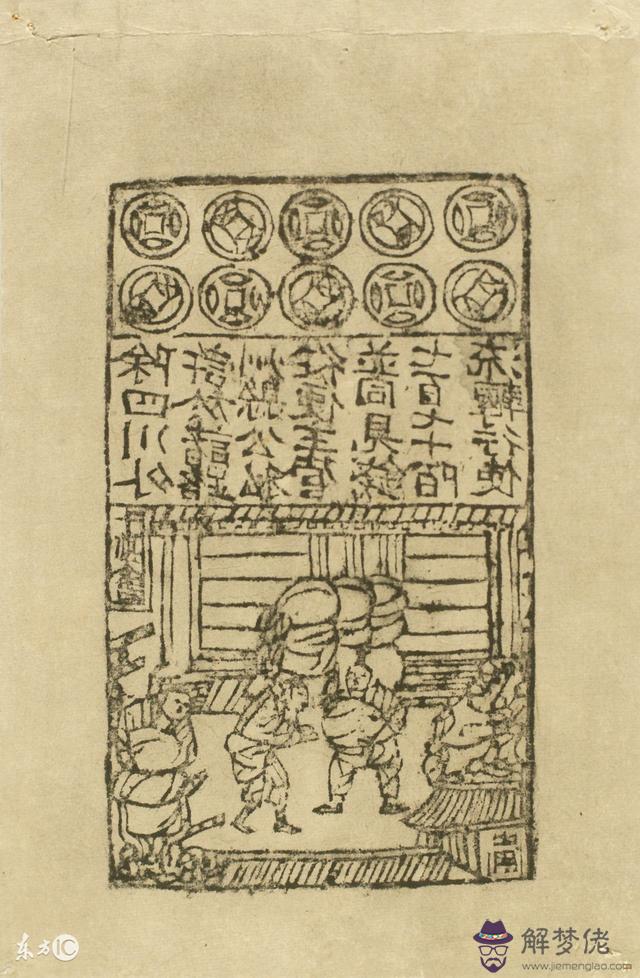 除四川外
許於諸路
州縣公私
從便主管
並同見錢
七百七十陌
流轉行使
东方IC
解梦佬
www.jiemenglao.com